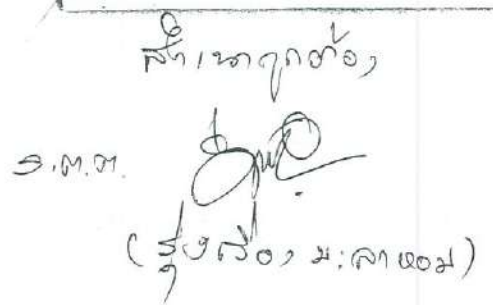 สำเนาถูกต้อง
ร.ต.ต.
(รุ่งเรือง มะลาหอม)